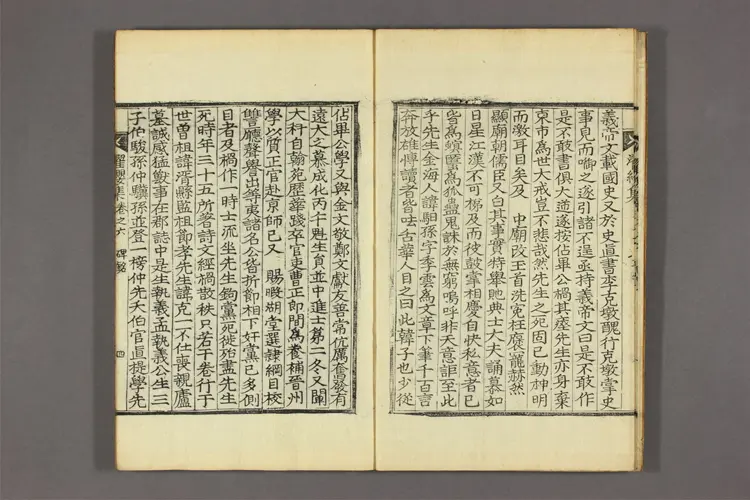 義帝文載國史又於史直書李克墩醜行克墩掌史
事見而啣之遂引諸不逞丞持義帝文曰是不敢作
是不敢書俱大道遂按佔畢公禍其壑先生亦身棄
京市為世大戒豈不悲哉然先生之死固已動神明
而激耳目矣及 中廟改王首洗寃枉廢寵赫然
顯廟朝儒臣又白其事實特舉貤典士大夫誦慕如
日星江漢不可梯及而彼鼓掌相慶自快私意者已
皆為䝟為狐蠱鬼誅於無窮嗚呼非天意詎至此
乎先生金海人諱馹孫字季雲為文章下筆千百言
奔放雄愽讀者皆吐舌華人目之曰此韓子也少從
佔畢公學又與金文敬鄭文獻友善常伉厲奮發有
遠大之慕成化丙午魁生員並中進士第二冬又闡
大科自翰苑歷華踐卒官吏曹正郞間為養補晉州
學以質正官赴京師已又 賜暇湖堂選隷綱目校
讐廳聲譽出等夷諸名公皆折節相下奸黨已多側
目者及禍作一時士流坐先生鉤黨死徙殆盡先生
死時年三十五所著詩文經禍散秩只若干卷行于
世曽祖諱湑縣監祖節孝先生諱克一不仕喪親廬
墓誠感猛獸事在郡誌中是生執義孟執義公生三
子伯駿孫仲驥孫並登一榜仲先夭伯官直提學先
集卷之六 碑銘 四